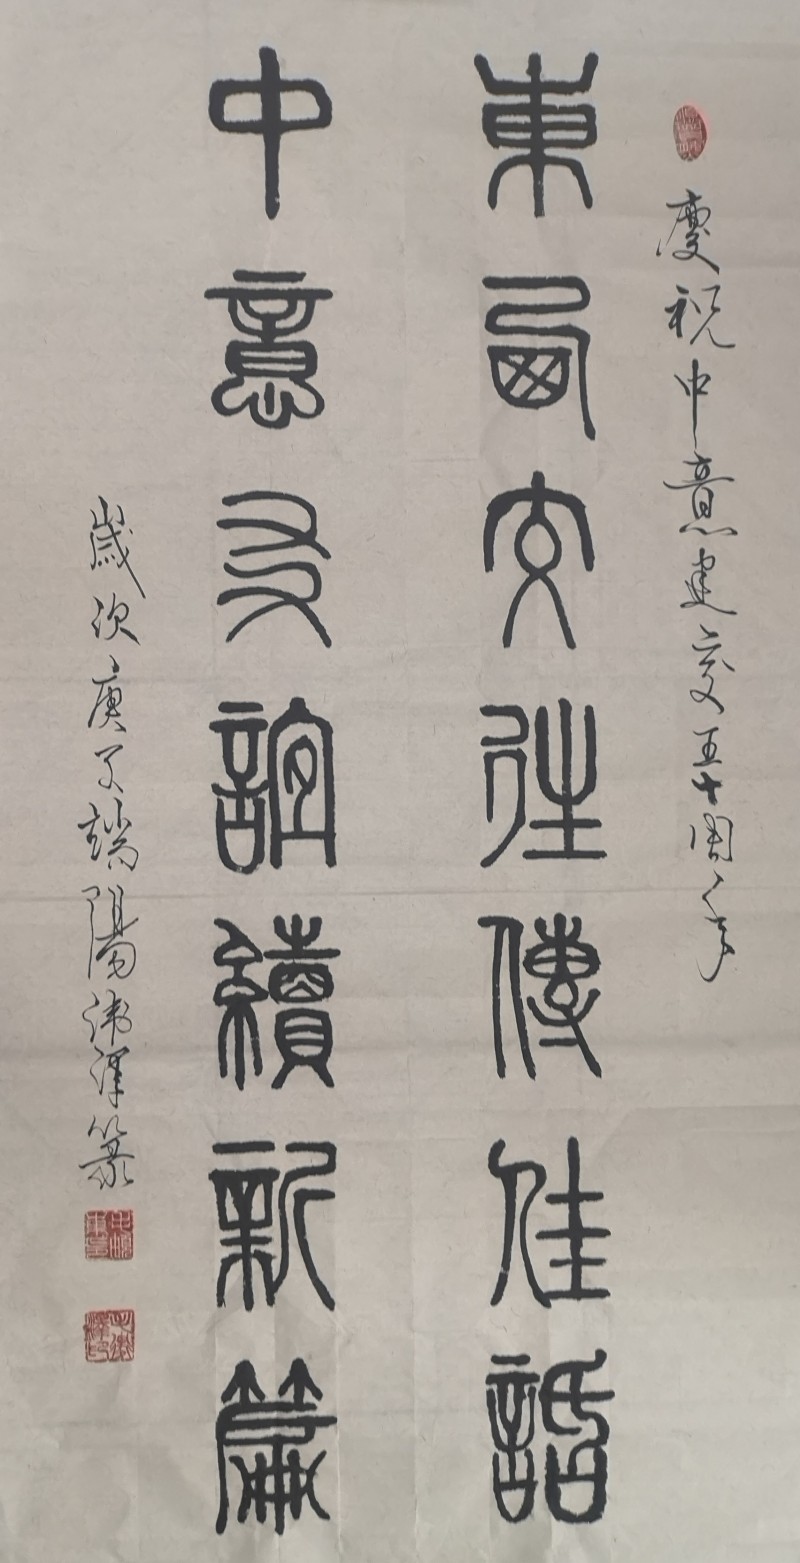 慶祝中意建交五十周年
東西交往傳佳話
中意友誼續新篇
歲次庚子端陽偉澤篆